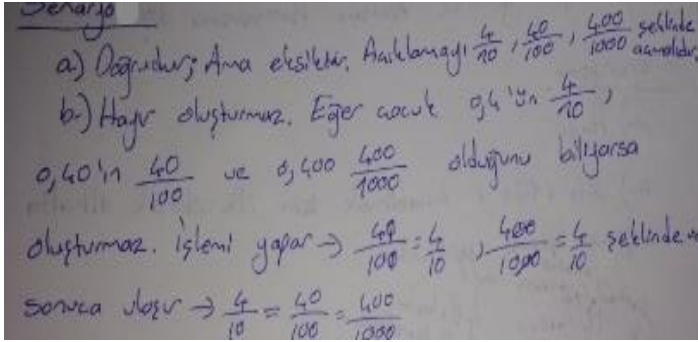 Senaryo
a.) Doğrudur; Ama eksiktir. Açıklamayı 4/10, 40/100, 400/1000 şeklinde açmalıdır.
b.) Hayır oluşturmaz. Eğer çocuk 0,4'ün 4/10,
0,40'ın 40/100 ve 0,400 400/1000 olduğunu biliyorsa
oluşturmaz. İşlemi yapar → 40/100 = 4/10, 400/1000 = 4/10 şeklinde ve
sonuca ulaşır → 4/10 = 40/100 = 400/1000